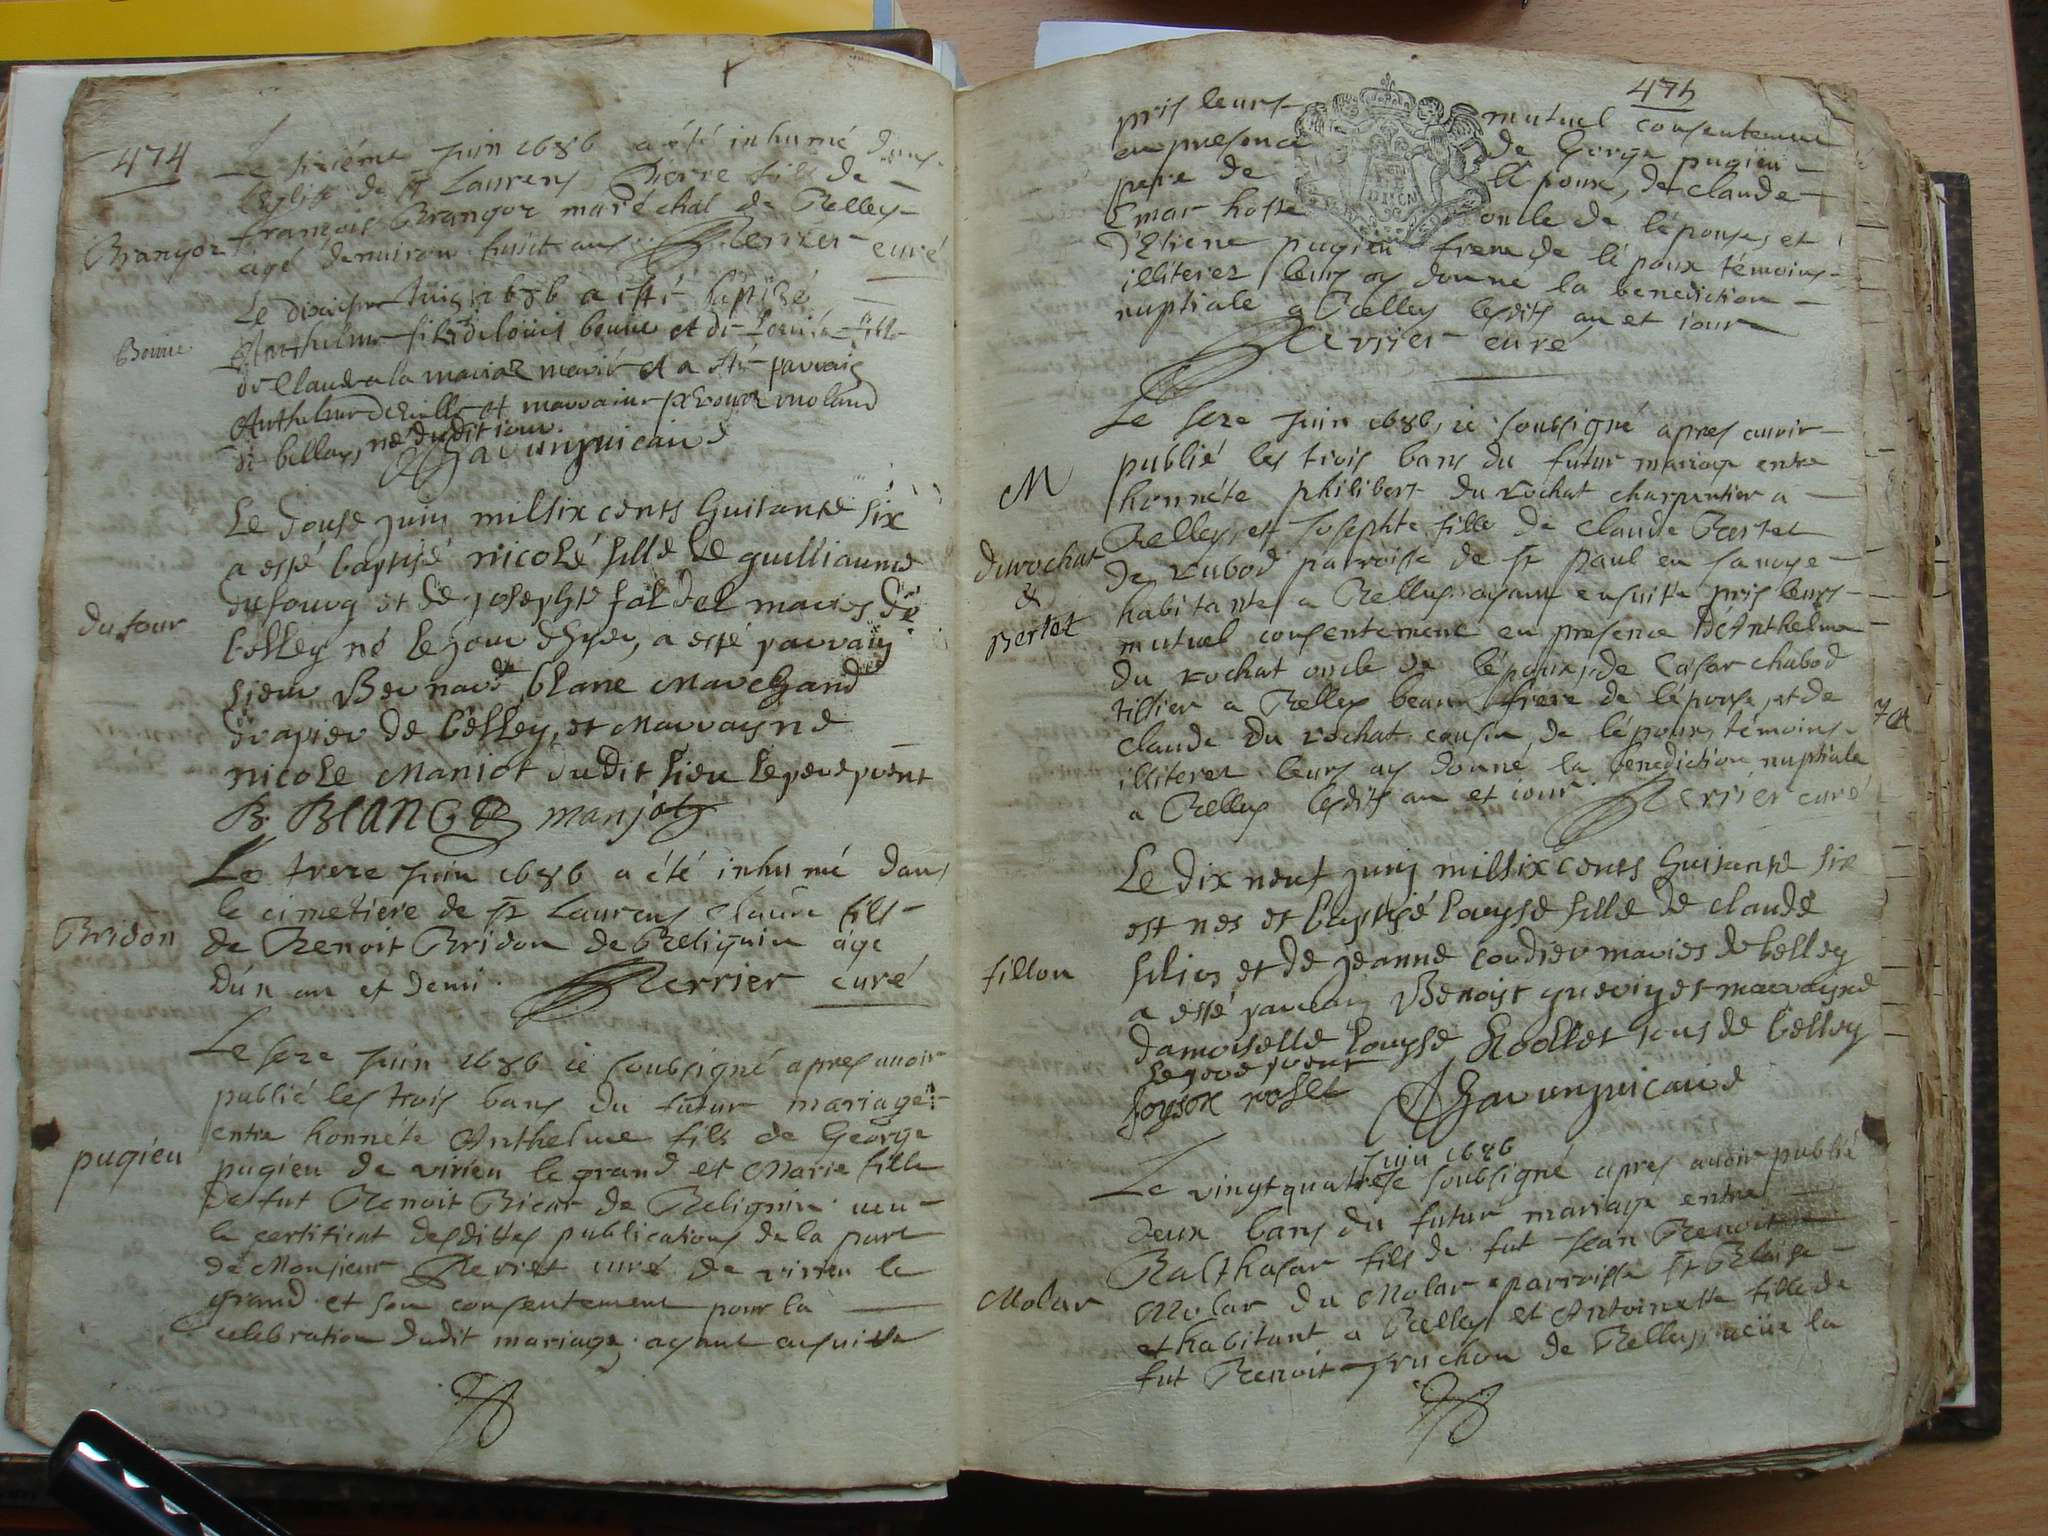 474
Le sixiéme Juin 1686 a été inhumé dans
l'eglise de St Laurens Pierre fils de
françois Brangor maréchal de Belley
Brangor
agé denuiron huict ans Perrier curé
Le dixiesme Juin 1686 a esté baptizé
Bonne
Anthelme fils de loüis bonne et de
de Claudra la mariés et a été parrain
Anthelme et marraine
de belley né dudit iour
Le douse juin mil six cents huitante six
a essé baptisé nicolé fille de guilliaume
dufourg et de josephte mariés de
dufour
belley né le jour dhyer, a essé parrain
sieur Bernard blanc Marchand
drapier de belley, et Marrayne
nicole Maniot dudit lieu le pere pnent
B. BLANC manjot
Le treze Juin 1686 a été inhumé dans
le cimetiere de St Laurens Claude fils
Bridon
de Benoit Bridon de Beligniu âgé
d'un an et demi Perrier curé
Le seze Juin 1686 ie soubsigné apres auoir
publié les trois bans du futur mariage
entre honnéte Anthelme fils de George
pugieu
pugieu de virieu le grand et Marie fille
de fut Benoit Bicat de Beligniu ueu
le certificat desdittes publications de la part
de Monsieur curé de virieu le
grand et son consentement pour la
celebration dudit mariage, ayant ensuitte
475
pris leurs mutuel consentement
en presence de Gorge pugieu
pere de l'époux, de Claude
hoste oncle de l'épouse, et
d'Etiene pugieu frere de l'époux témoins
illiterez leurs ay donne la benediction
nuptiale a Belley lesdits an et iour
Perrier curé
Le seze Juin 1686, ie soubsigné apres auoir
publié les trois bans du futur mariage entre
M
honnéte philibert du rochat charpentier a
Belley, et Josephte fille de Claude Bertet
durochat
&
Bertet
de rubod parroisse de St Paul en sauoye
habitante a Belley ayant ensuitte pris leurs
mutuel consentement en presence d'Anthelme
du rochat oncle de l'époux, de Cesar chabod
tissier a Belley beau frere de l'épouse, et de
claude du rochat cousin de l'époux témoins
illiterez leurs ay donné la benediction nuptiale
a Belley lesdits an et iour Perrier curé
Le dix neuf juin mil six cents huitante six
est nes et baptisé louyse fille de claude
fillon
filion et de jeanne cordier mariés de belley
a essé parrain Benoist et marrayne
damoiselle louyse Rollet tous de belley
le pere pnent
Le vingt quatre Juin 1686
ie soubsigné apres auoir publié
deux bans du futur mariage entre
Balthasar fils de fut Jean Benoit
Molar
Molar du Molar parroisse St Blaise
et habitant a Belley et Antoinette fille de
fut Benoit Truchon de Belley, ueüe la